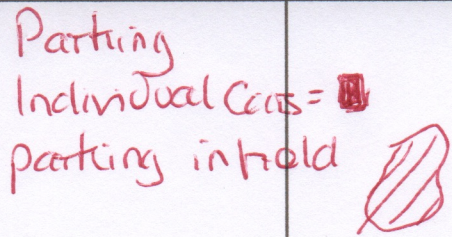 Parking
Individual Cars =
parking in field